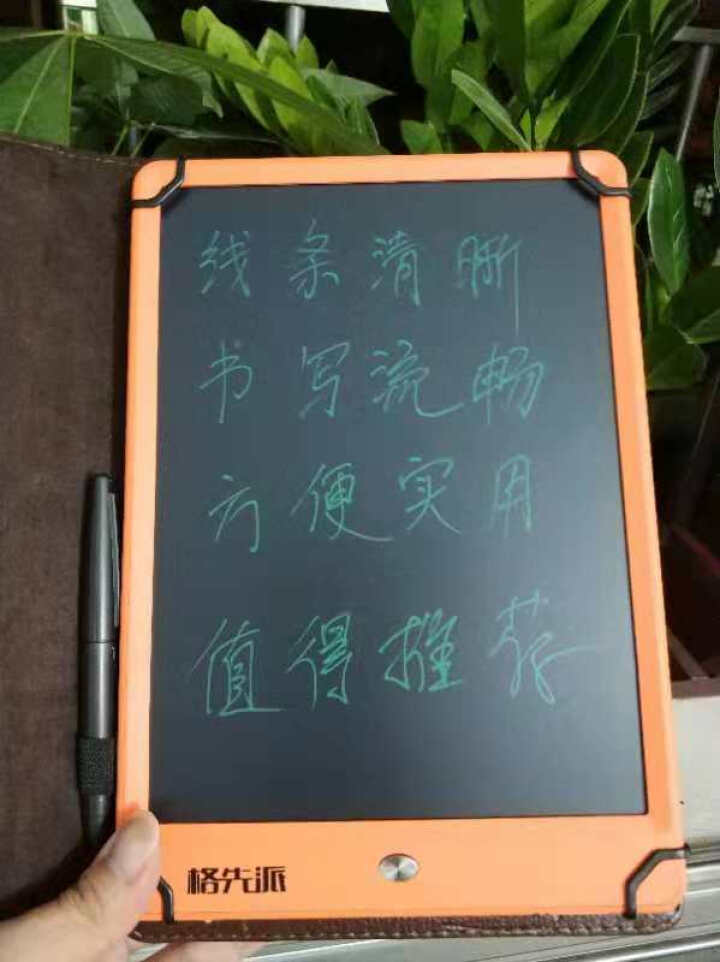 线条清晰
书写流畅
方便实用
值得推荐
格先派